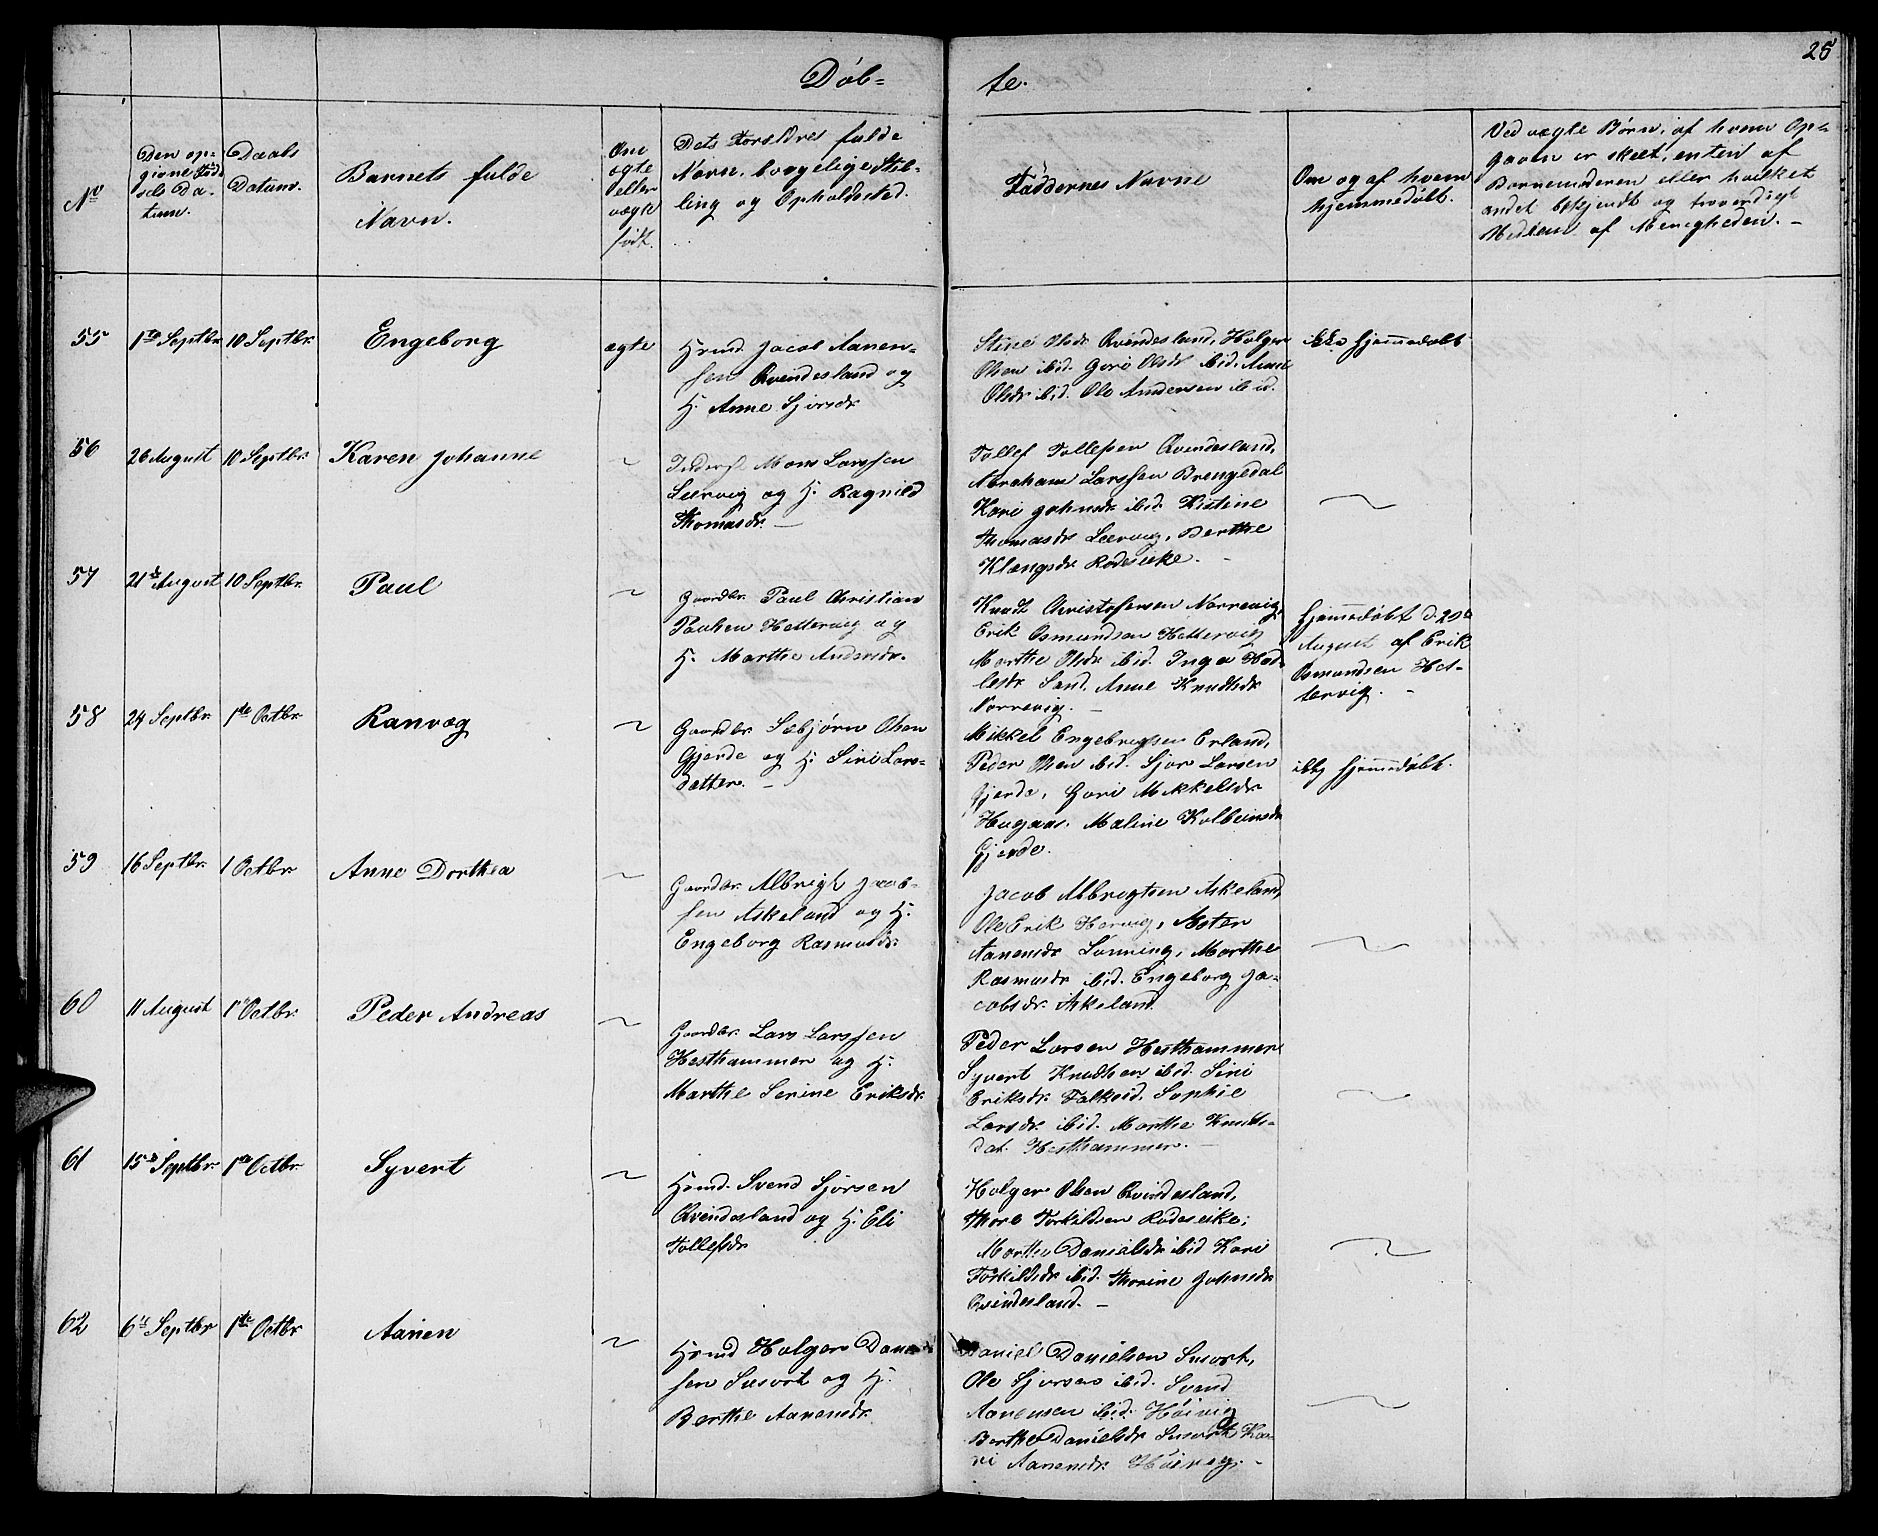 25
Døb-
te.
No
Den op-
givne Fød-
sels Da-
tum.
Daabs
Datum.
Barnets fulde
Navn.
Om
ægte
eller
uægte
født.
Dets Forældres fulde
Navn, borgelige Stil-
ling og Opholdssted.
Faddernes Navne
Om og af hvem
hjemmedøbt.
Ved uægte Børn, af hvem Op-
gaven er skeet, enten af
Barnemoderen eller hvilket
andet bekjendt og troværdigt
Medlem af Menigheden. -
55
1te Septbr.
10 Septbr.
Engeborg
ægte
Hmd. Jacob Aanen-
sen Qvindesland og
H. Anne Sjursdr.
Stine Olsdr. Qvindesland, Holger
Olsen ibid. Guri Olsdr. ibid. Anne
Olsdr. ibid. Ole Andersen ibid.
ikke hjemmedøbt
56
26 August
10 Septbr.
Karen Johanne
~
Inderst Mons Larssen
Leervig og H. Ragnild
Thomasdr. -
Tollef Tollefsen Qvindesland,
Abraham Larssen Brengedal
Kari Johnsdr. ibid. Kistine
Thomasdr. Leervig, Berthe
Klængsdr. Rødseike. -
~
57
21de August
10 Septbr.
Paul
~
Gaardbr. Paul Christian
Paulsen Hettervig og
H. Marthe Andersdr.
Knudt Christofersen Norrevig,
Erik Osmundsen Hettervig
Marthe Olsdr. ibid. Inger Had-
lesdr. Sand, Anne Knudtsdr.
Norrevig. -
hjemmedøbt d. 29de
August af Erik
Osmundsen Het-
tervig. -
58
24 Septbr.
1ste Octbr.
Ranvæg
~
Gaardbr. Sæbjørn Olsen
Gjerde og H. Siri Lars-
datter. -
Mikkel Engebregtsen Erland,
Peder Olsen ibid. Sjur Larsen
Gjerde, Guri Mikkelsdr.
Hugaas, Maline Kolbeinsdr.
Gjerde.
ikke hjemmedøbt.
59
16 Septbr.
1 Octbr.
Anne Dorthea
~
Gaardbr. Albrigt Jacob-
sen Askeland og H.
Engeborg Rasmusdr.
Jacob Albregtsen Askeland,
Ole Erik Hervig, Aster
Aanensdr. Lunning, Marthe
Rasmusdr. ibid. Engeborg Ja-
cobsdr. Askeland.
~
60
11 August
1 Octbr.
Peder Andreas
~
Gaardbr. Lars Larssen
Hesthammer og H.
Marthe Serine Eriksdr.
Peder Larsen Hesthammer
Syvert Knudtsen ibid. Siri
Eriksdr. Falkeid. Sophie
Larsdr. ibid. Marthe Knuds-
dat. Hesthammer. -
~
61
15de Septbr.
1te Octbr.
Syvert
~
Hmd. Svend Sjursen
Qvindesland og H. Eli
Tollefsdr.
Holger Olsen Qvindesland,
Thore Torkildsen Rødseike;
Marthe Danielsdr. ibid Kari
Torkildsdr. ibid. Thorine Johnsdr.
Qvindesland. -
~
62
6te Septbr
1ste Octbr
Aanen
~
Hmd Holger Daniel-
sen Susort og H.
Berthe Aanensdr.
Daniel Danielsen Susort,
Ole Sjursen ibid. Svend
Aanensen ibid. Høivig
Berthe Danielsdr. Susort Ka-
ri Aanensdr. Høivig. -
~